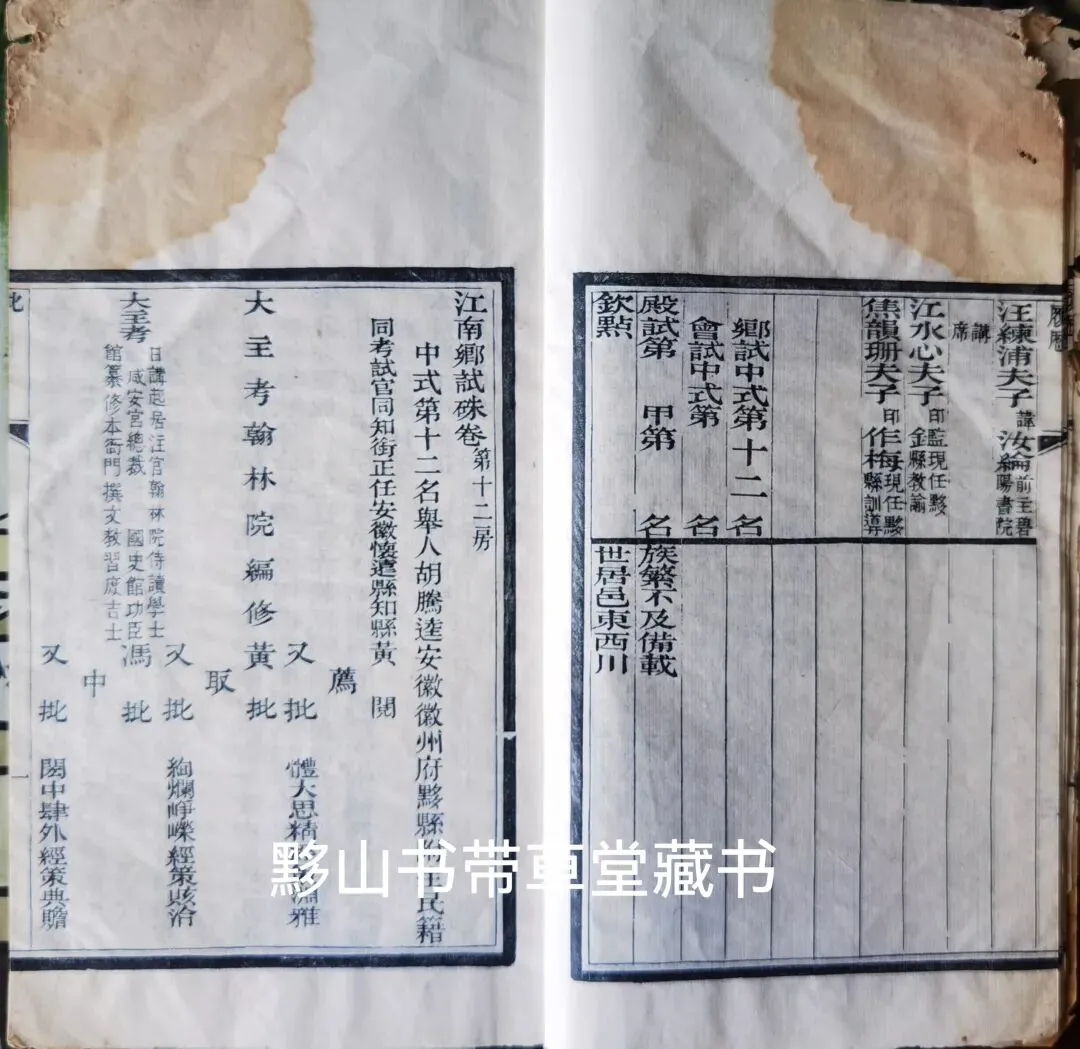 履歷
汪練浦夫子 諱汝綸 前主碧陽書院
講席
江水心夫子 印鑑 現任黟縣教諭
焦韻珊夫子 印作梅 現任黟縣訓導
鄉試中式第十二名
會試中式第 名
殿試第 甲第 名
欽點
族繁不及備載
世居邑東西川
江南鄉試硃卷 第十二房
中式第十二名舉人胡騰逵安徽徽州府黟縣 民籍
同考試官同知銜正任安徽懷遠縣知縣黃 閱
薦
又批 體大思精 淵雅
大主考翰林院編修黃 批
取
又批 絢爛崢嶸經策該洽
大主考 日講起居注官翰林院侍讀學士 咸安宮總裁 國史館功臣館纂修本衙門撰文教習庶吉士 馮 批
中
又批 閎中肆外經策典贍
批
黟山书带草堂藏书